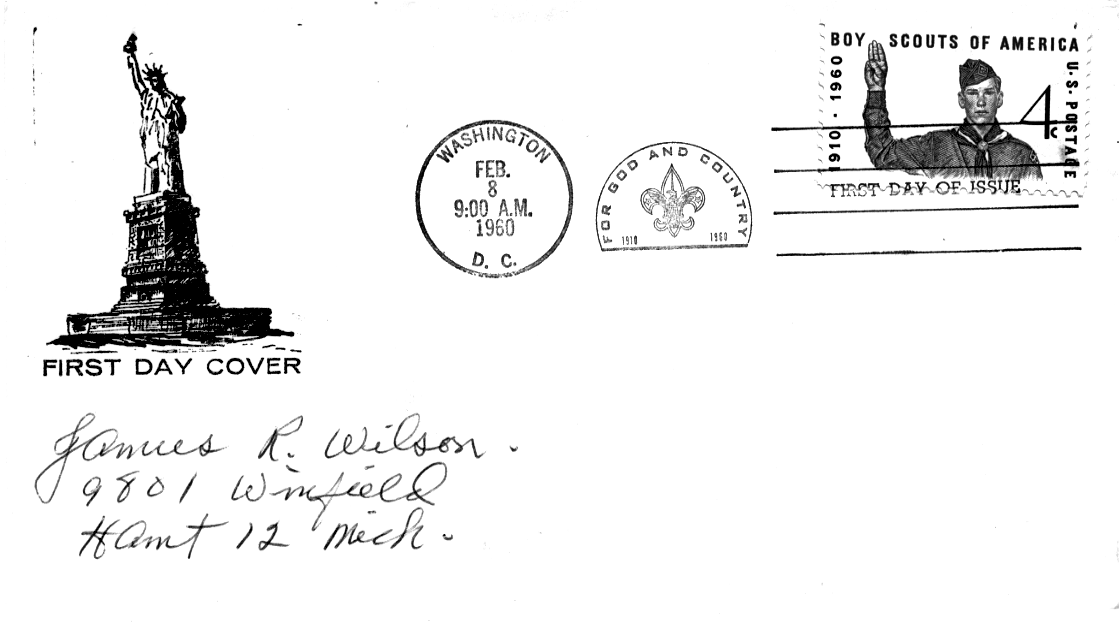 BOY SCOUTS OF AMERICA
1910 - 1960
U·S·POSTAGE
4c
FIRST DAY OF ISSUE
WASHINGTON
FEB.
8
9:00 A.M.
1960
D. C.
FOR GOD AND COUNTRY
1910 1960
FIRST DAY COVER
James R. Wilson.
9801 Winfield
Hamt 12 Mich.